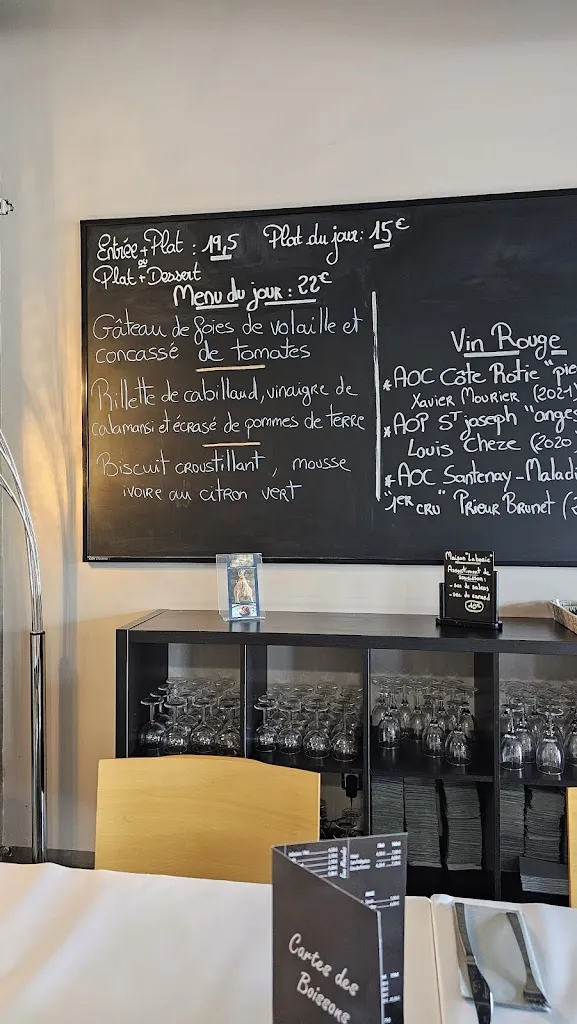 Entrée + Plat : 19,5
ou
Plat + Dessert
Plat du jour: 15€
Menu du jour : 22€
Gâteau de foies de volaille et
concassé de tomates
Rillette de cabillaud, vinaigre de
calamansi et écrasé de pommes de terre
Biscuit croustillant, mousse
ivoire au citron vert
Vin Rouge
* AOC Côte Rotie "pie
Xavier Mourier (2021)
* AOP St joseph "anges
Louis Cheze (2020
* AOC Santenay-Maladi
"1er cru" Prieur Brunet (
Assortiment de
10€
Cartes des
Boissons